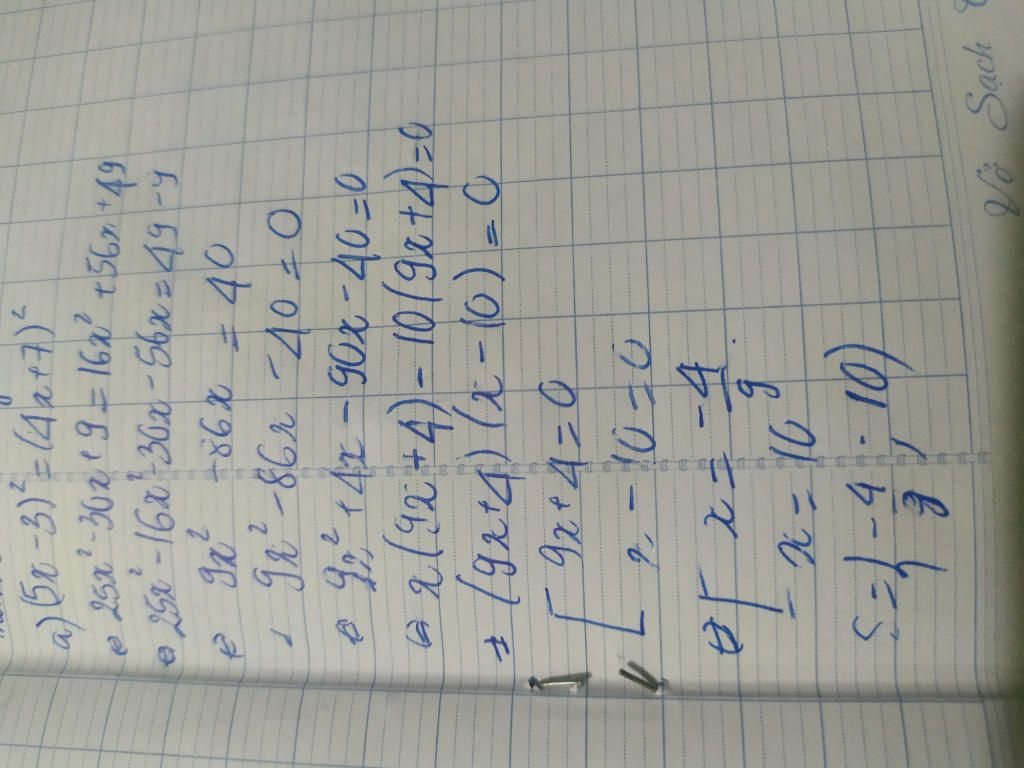 a) (5x - 3)² = (4x + 7)²
⇔ 25x² - 30x + 9 = 16x² + 56x + 49
⇔ 25x² - 16x² - 30x - 56x = 49 - 9
⇔ 9x² - 86x = 40
9x² - 86x - 40 = 0
⇔ 9x² + 4x - 90x - 40 = 0
⇔ x(9x + 4) - 10(9x + 4) = 0
⇔ (9x + 4)(x - 10) = 0
[ 9x + 4 = 0
x - 10 = 0
⇔ [ x = -4/9
x = 10
S = { -4/9 ; 10 }
Vở Sạch